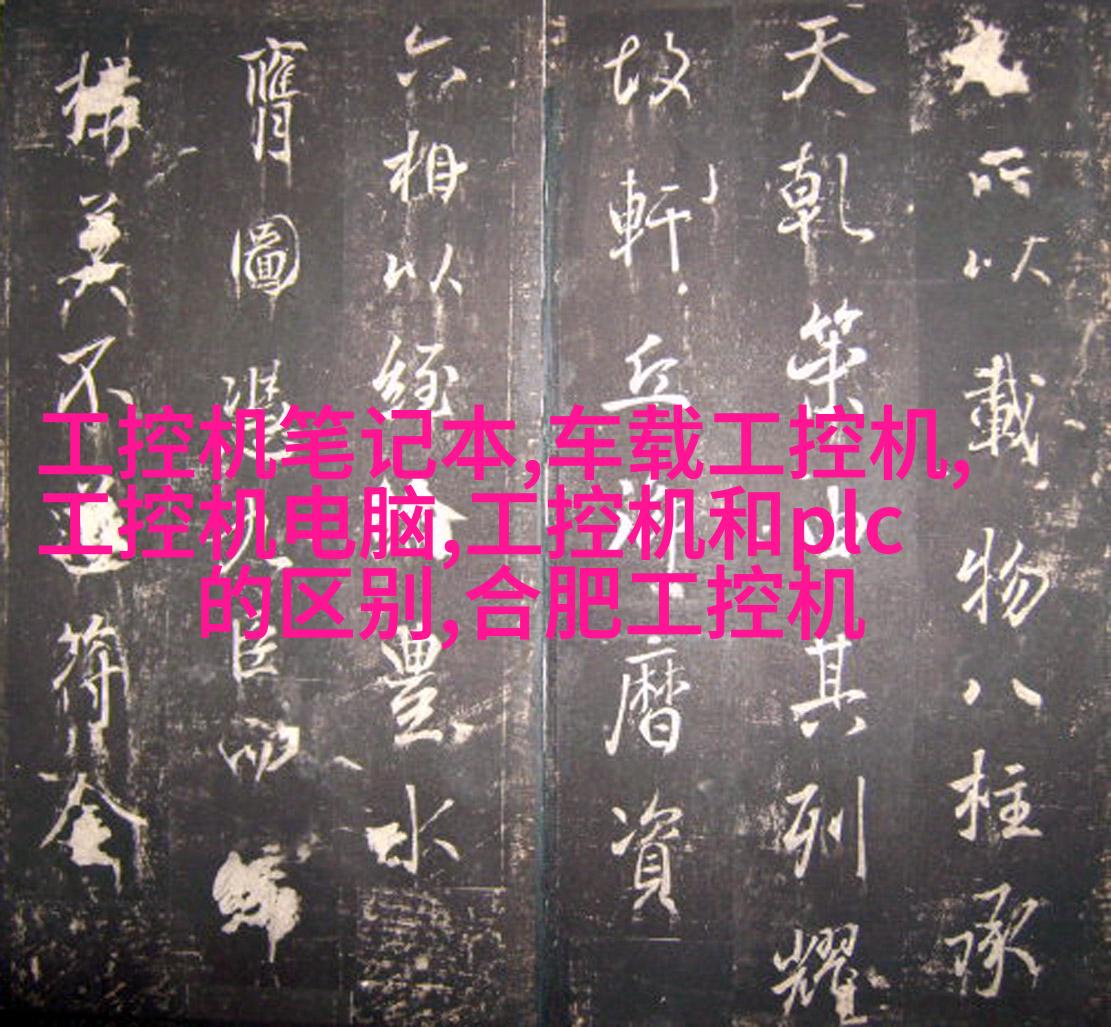 工控机笔记本,车载工控机,
工控机电脑,工控机和plc
的区别,合肥工控机
所以載物八柱承
天乾山其列耀
故軒丘曆資
六相以經豐水
膺圖臣
不符金